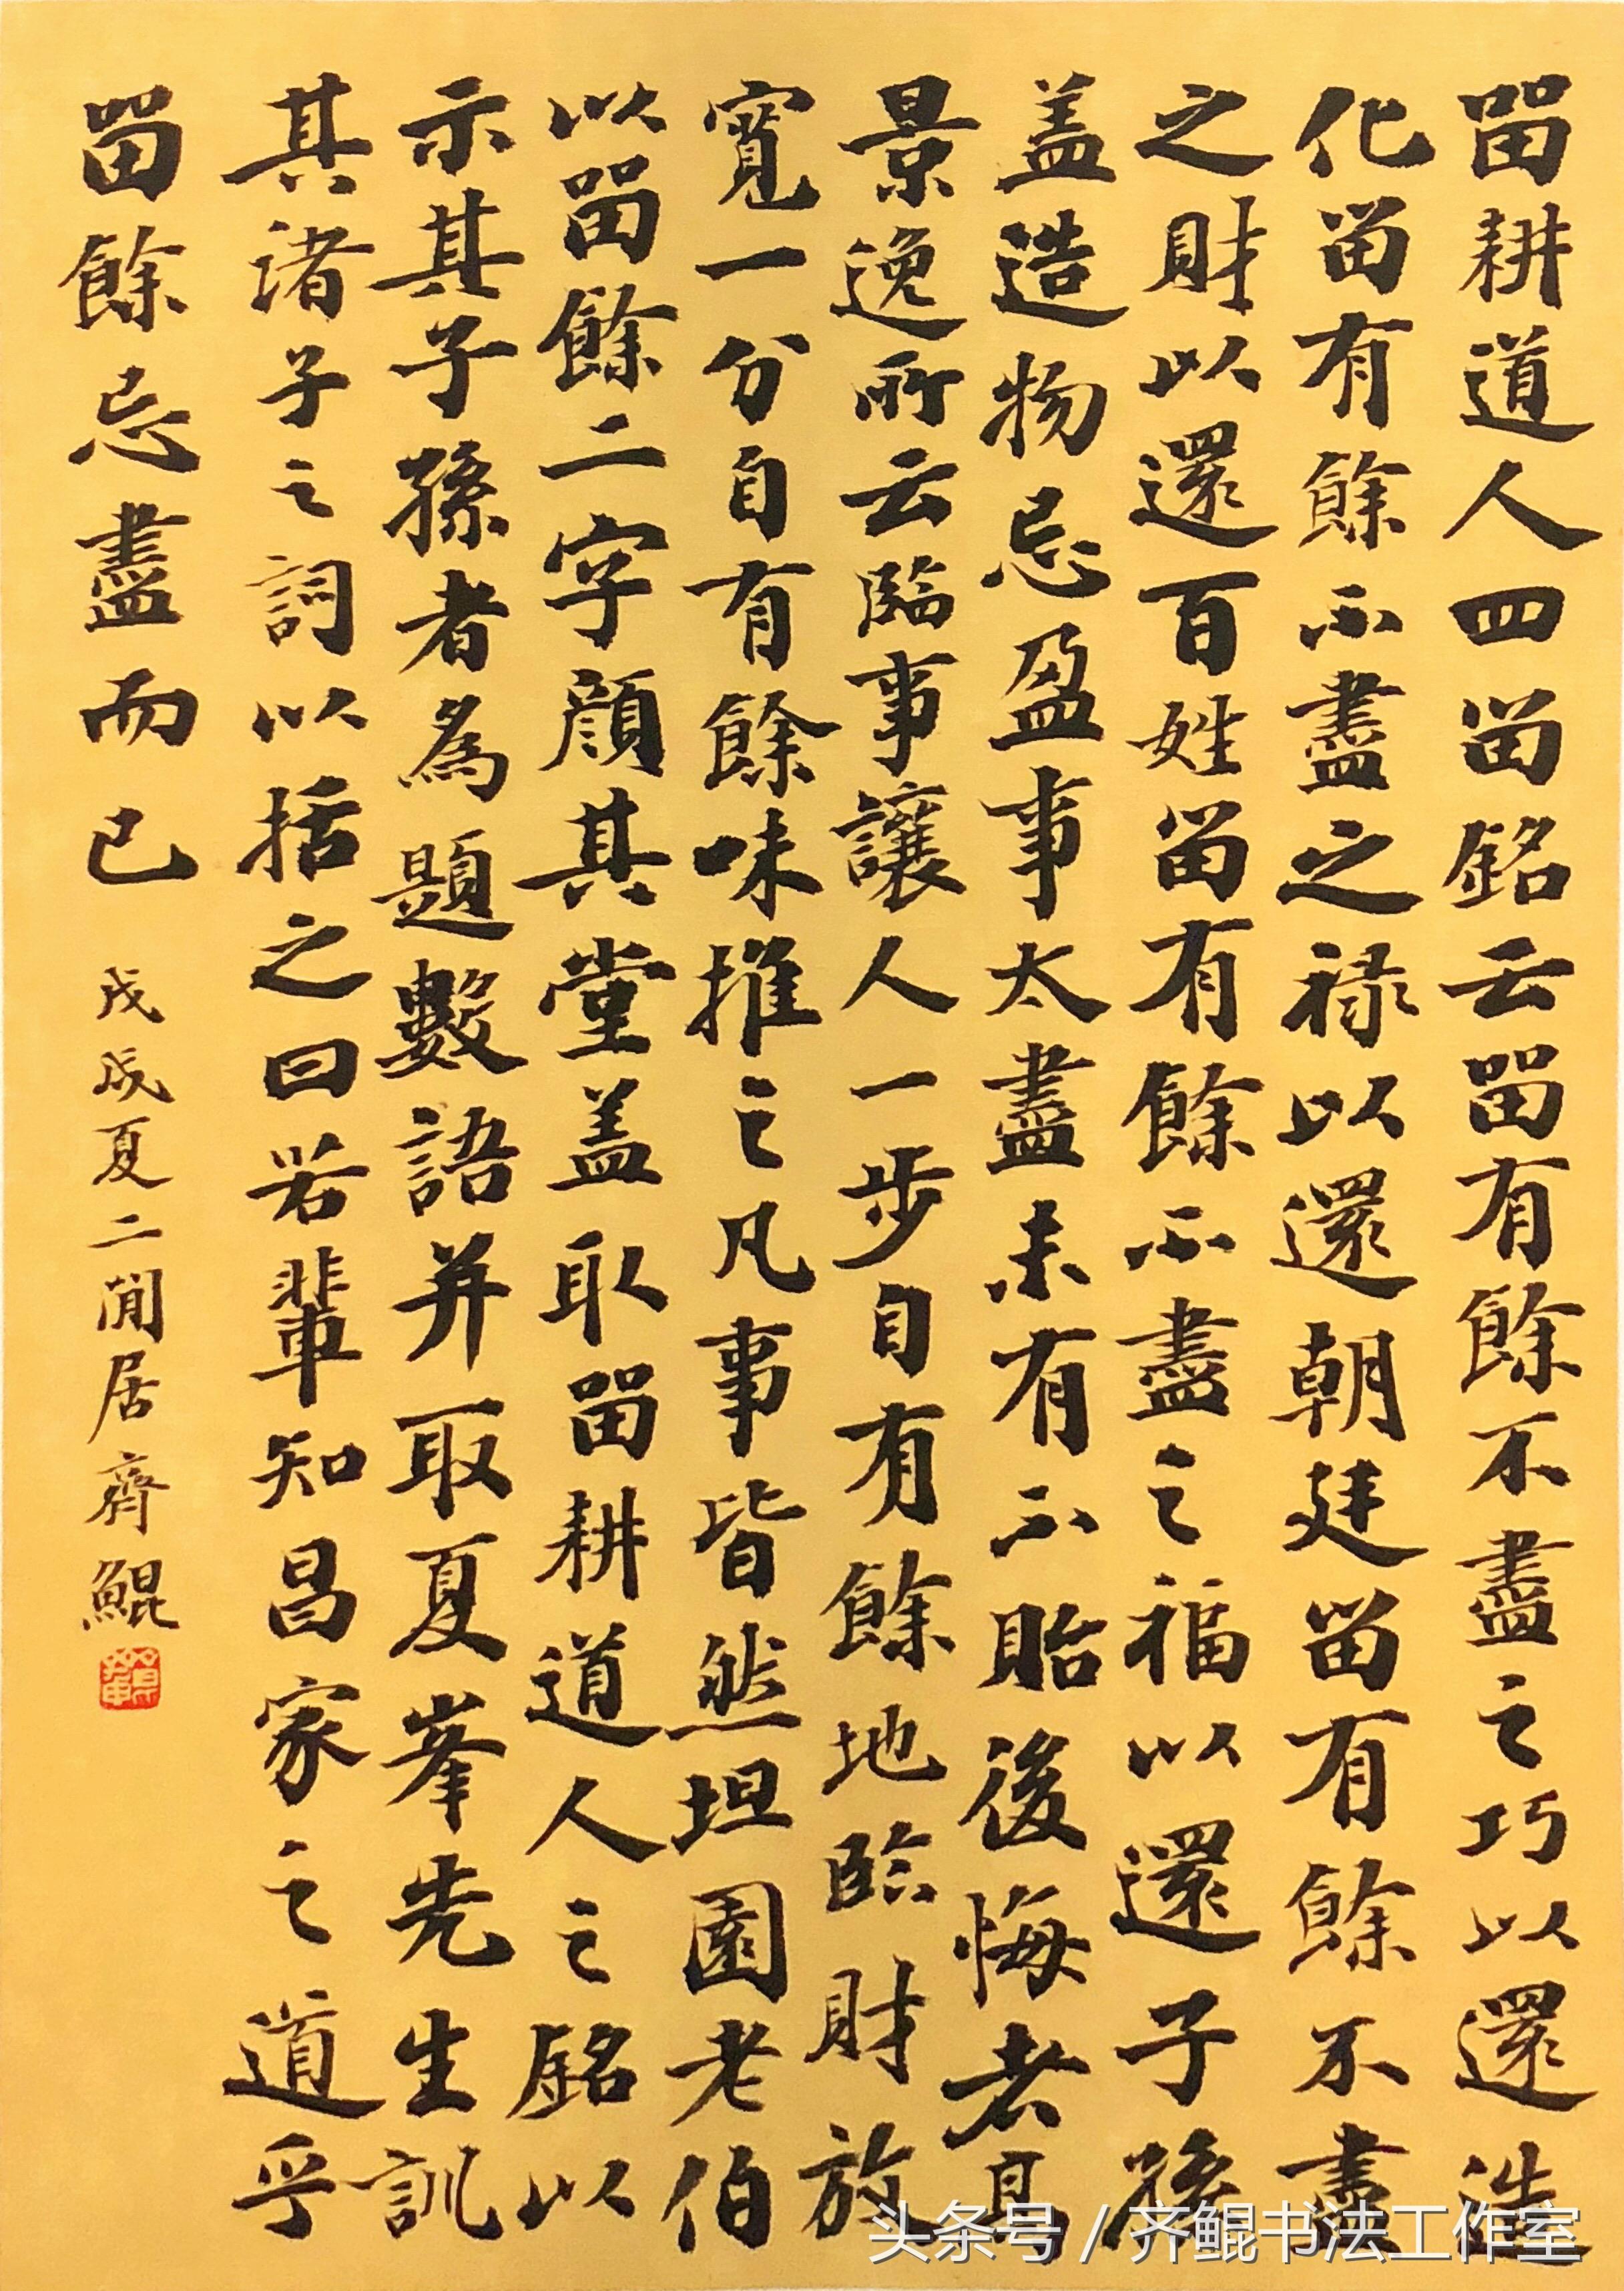 留耕道人四留銘云留有餘不盡之巧以還造
化留有餘不盡之禄以還朝廷留有餘不盡
之財以還百姓留有餘不盡之福以還子孫
盖造物忌盈事太盡未有不貽後悔者高
景逸所云臨事讓人一步自有餘地臨財放
寬一分自有餘味推之凡事皆然坦園老伯
以留餘二字顔其堂盖取留耕道人之銘以
示其子孫者為題數語并取夏峯先生訓
其諸子之詞以括之曰若輩知昌家之道乎
留餘忌盡而已
戊戌夏二閒居齊鯤
头条号 / 齐鲲书法工作室